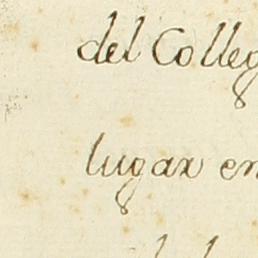 del Colleg
lugar en